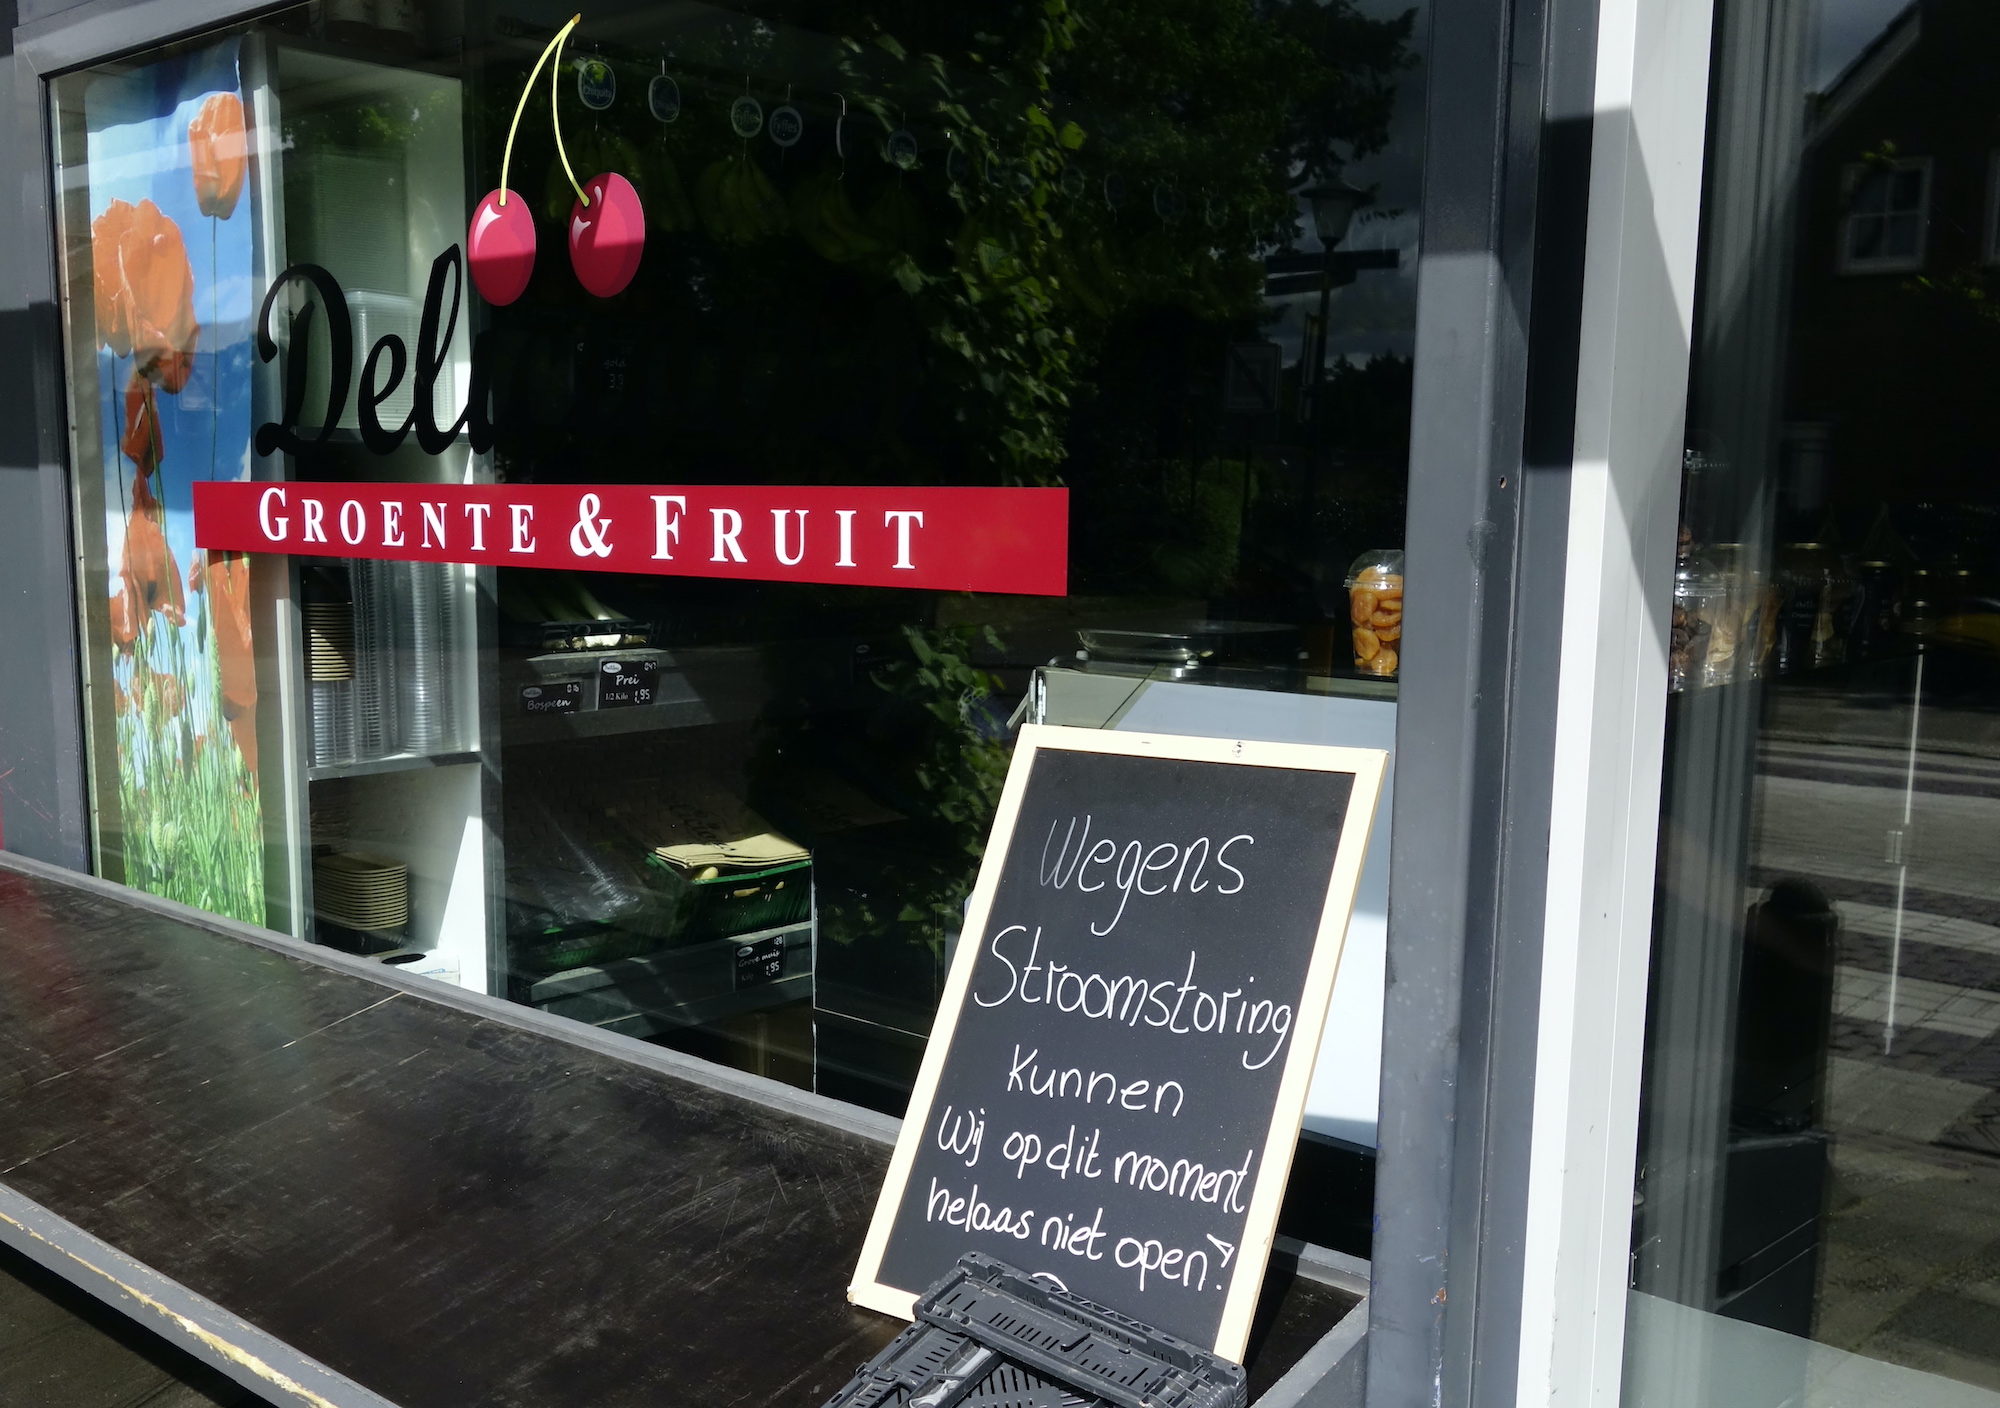 Chiquita
Fyffes
Fyffes
GROENTE & FRUIT
Prei
1/2 Kilo 1,95
Bospeen
Grove
1,95
Wegens
Stroomstoring
Kunnen
Wij op dit moment
helaas niet open!